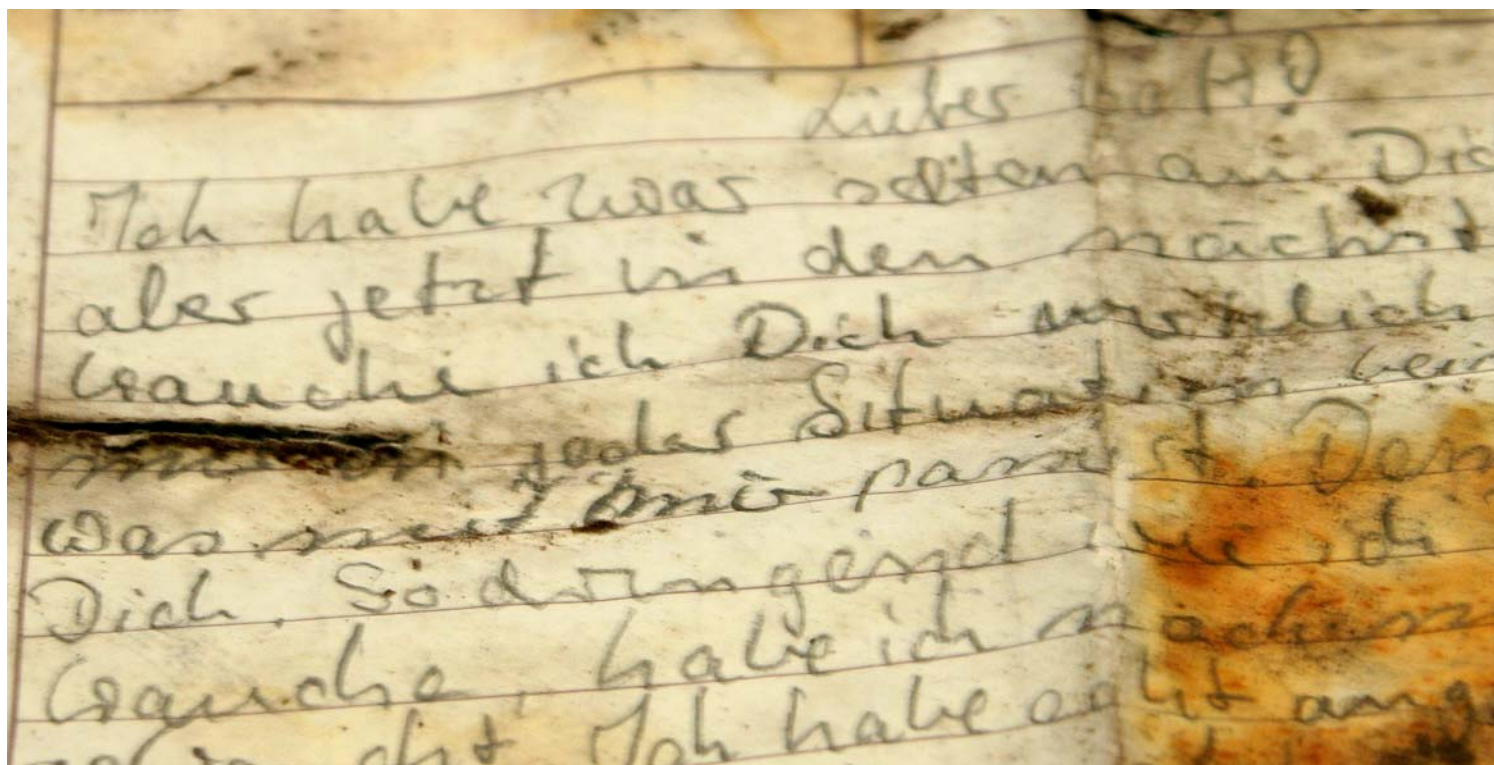 Lieber Gott!
Ich habe zwar selten an Dic
aber jetzt in den nächst
brauche ich Dich wirklich
jeder Situation
was mit mir passiert. Den
Dich. So dringend wie ich
brauche, habe ich
Ich habe echt ang